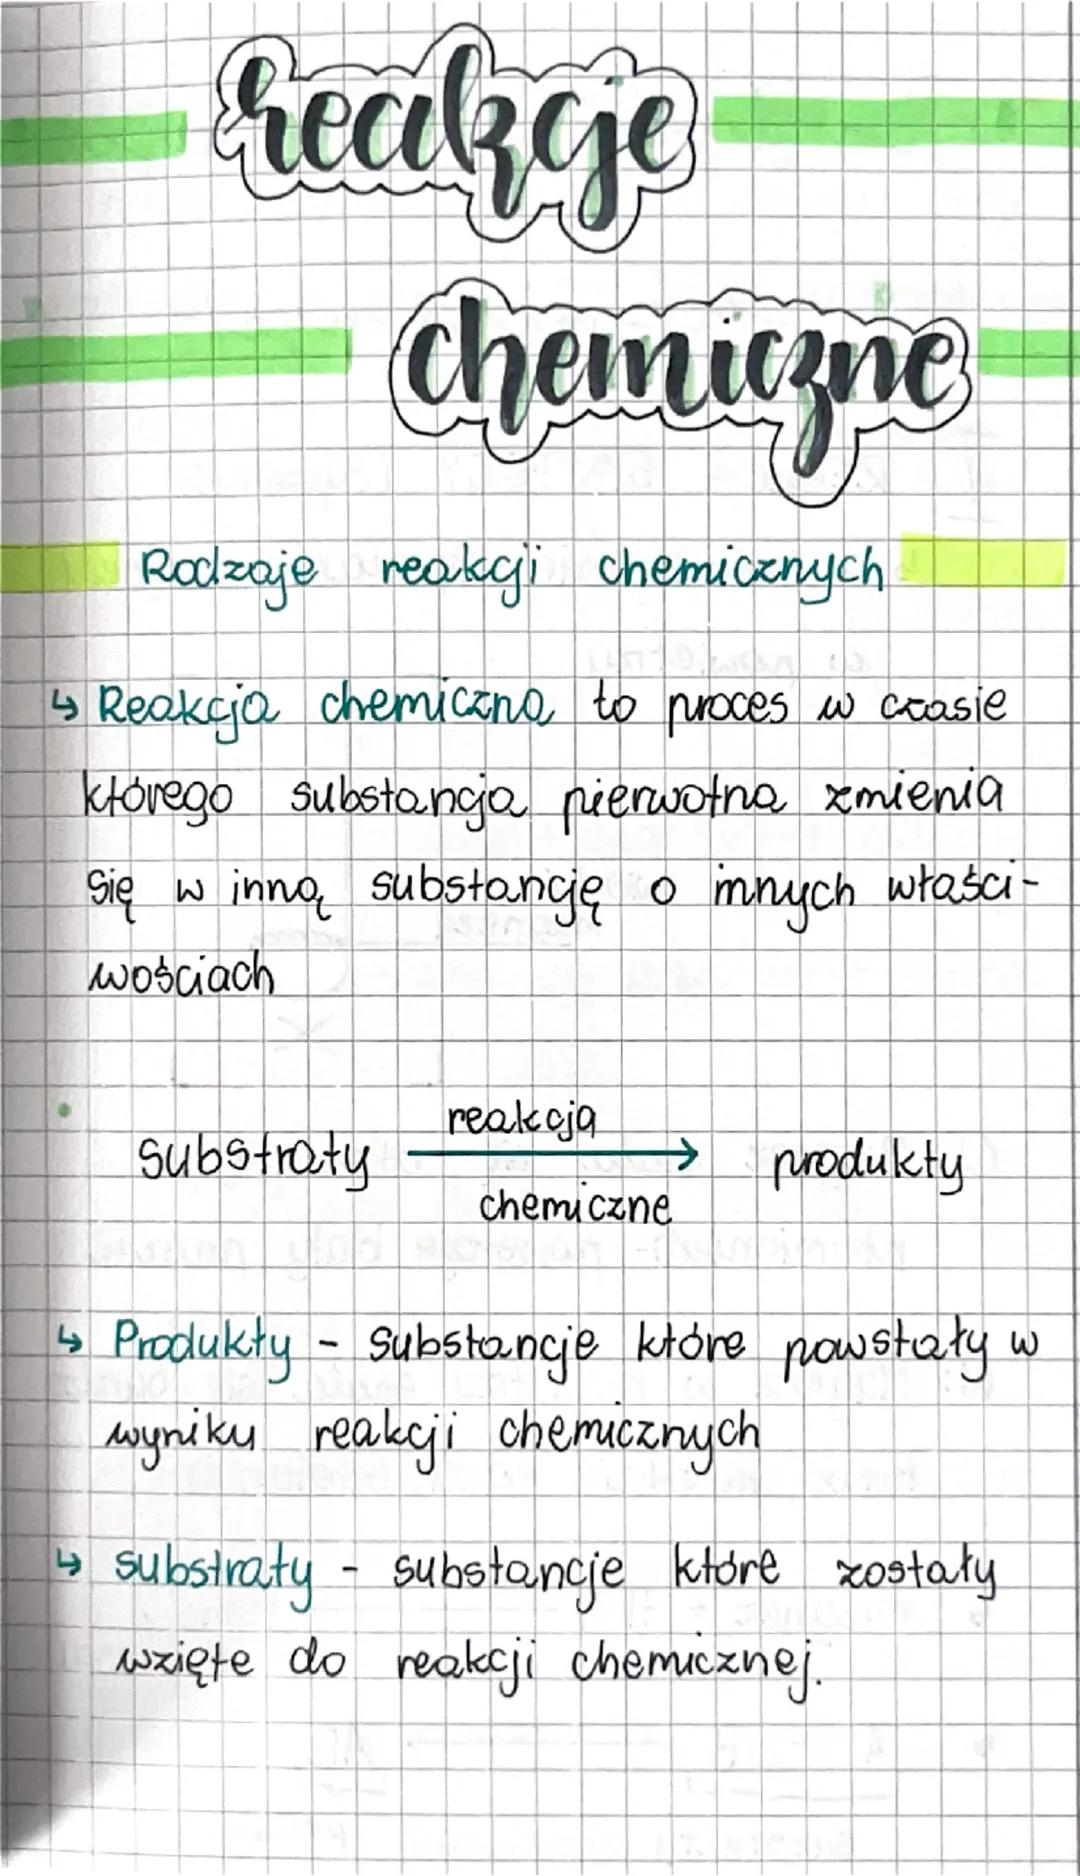 reakcje
chemiczne
Rodzaje reakcji chemicznych
↳ Reakcja chemiczna to proces w czasie
którego substancja pierwotna zmienia
się w inną substancję o innych właści-
wościach
reakcja
substraty → produkty
chemiczne
↳ Produkty - substancje które powstały w
wyniku reakcji chemicznych
↳ substraty - substancje które zostały
wzięte do reakcji chemicznej.